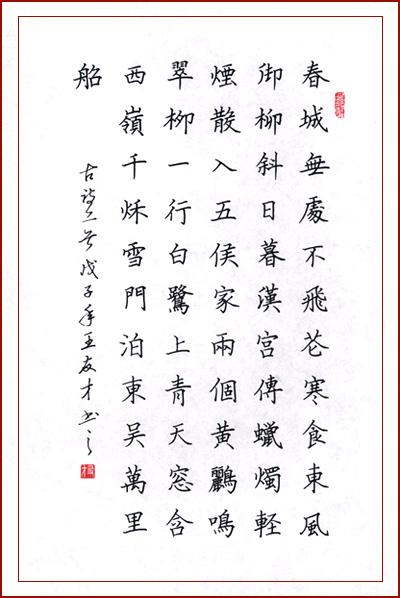 春城無處不飛花寒食東風
御柳斜日暮漢宮傳蠟燭軽
煙散入五侯家兩個黃鸝鳴
翠柳一行白鷺上青天窓含
西嶺千秋雪門泊東吳萬里
船
古詩二首戊子年王友才书之